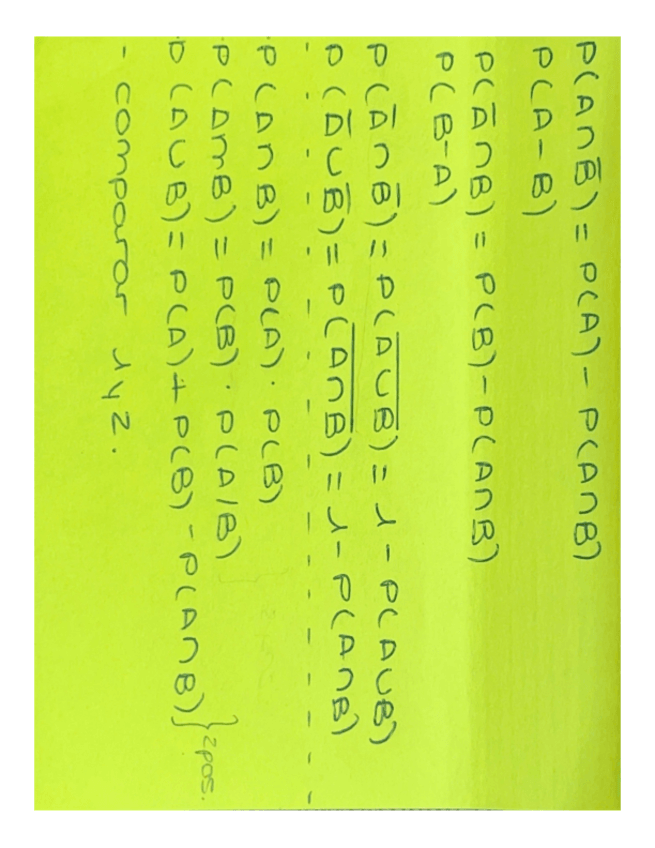 P(A∩B̅) = P(A) - P(A∩B)
P(A-B)
P(A̅∩B) = P(B) - P(A∩B)
P(B-A)
P(A̅∩B̅) = P(A∪B)̅ = 1 - P(A∪B)
P(A̅∪B̅) = P(A∩B)̅ = 1 - P(A∩B)
· P(A∩B) = P(A) · P(B)
· P(A∩B) = P(B) · P(A/B)
P(A∪B) = P(A) + P(B) - P(A∩B) } 2 pos.
- comparar 1 y 2.